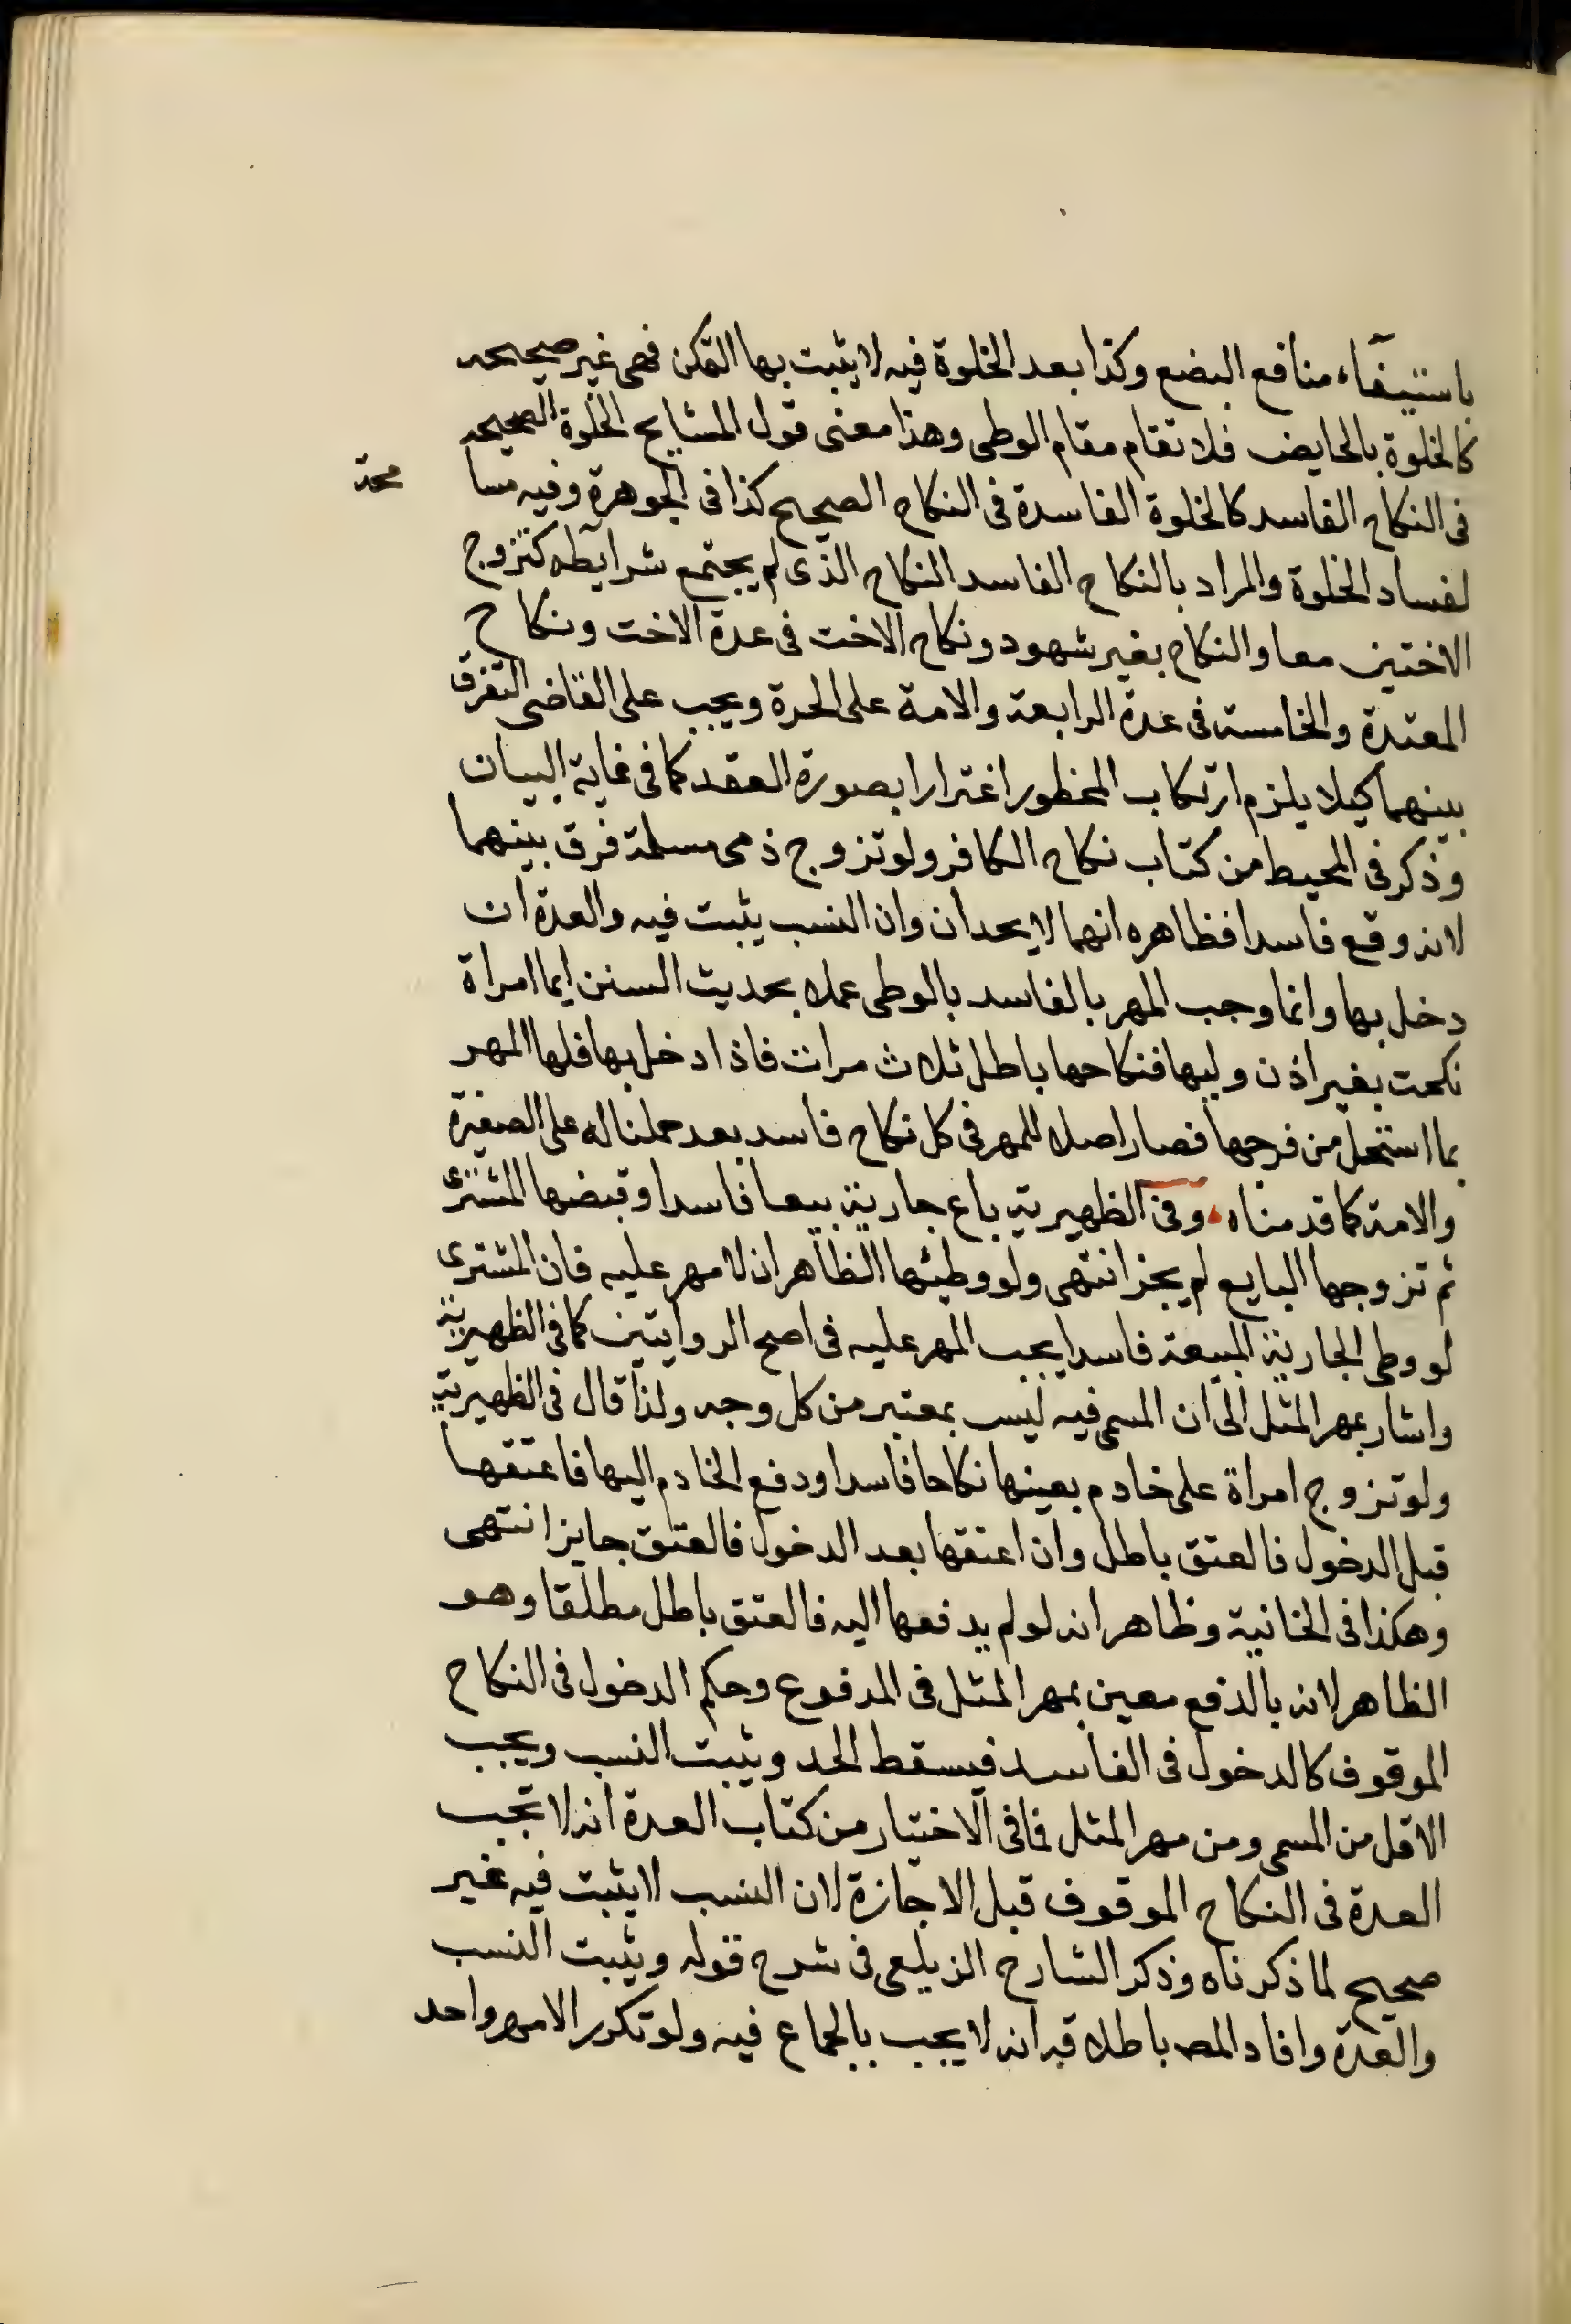 باستيفآء منافع البضع وكذا بعد الخلوة فيه لا يثبت بها التمكن فهى غير صحيحه
كالخلوة بالحايض فلا تقام مقام الوطى وهذا معنى قول المشايخ الخلوة الصحيحه
فى النكاح الفاسد كالخلوة الفاسدة فى النكاح الصحيح كذا فى الجوهرة وفيه مسا
لفساد الخلوة والمراد بالنكاح الفاسد النكاح الذى لم يجتمع شرايطه كتزوج
الاختين معا والنكاح بغير شهود ونكاح الاخت فى عدة الاخت ونكاح
المعتدة والخامسة فى عدة الرابعة والامة على الحرة ويجب على القاضى التفرق
بينهما كيلا يلزم ارتكاب المحظور اغترارا بصورة العقد كما فى غاية البيان
وذكر فى المحيط من كتاب نكاح الكافر ولو تزوج ذمى مسلمة فرق بينهما
لانه وقع فاسدا فظاهره انهما لا يحدان وان النسب يثبت فيه والعدة ان
دخل بها وانما وجب المهر بالفاسد بالوطى عملا بحديث السنن ايما امراة
نكحت بغير اذن وليها فنكاحها باطل ثلاث مرات فاذا دخل بها فلها المهر
بما استحل من فرجها فصار اصلا للمهر فى كل نكاح فاسد بعد حملنا له على الصغيرة
والامة كما قدمناه وفى الظهيرية باع جارية بيعا فاسدا وقبضها المشترى
ثم تزوجها البايع لم يجز انتهى ولو وطيئها الظاهر ان لا مهر عليه فان المشترى
لو وطى الجارية المبيعة فاسدا يجب المهر عليه فى اصح الروايتين كما فى الظهيرية
واشار بمهر المثل الى ان المسمى فيه ليس بمعتبر من كل وجه ولذا قال فى الظهيرية
ولو تزوج امراة على خادم بعينها نكاحا فاسدا ودفع الخادم اليها فاعتقها
قبل الدخول فالعتق باطل وان اعتقها بعد الدخول فالعتق جايز انتهى
وهكذا فى الخانية وظاهر انه لو لم يدفعها اليه فالعتق باطل مطلقا وهو
الظاهر لانه بالدفع معين بمهر المثل فى المدفوع وحكم الدخول فى النكاح
الموقوف كالدخول فى الفاسد فيسقط الحد ويثبت النسب ويجب
الاقل من المسمى ومن مهر المثل فما فى الاختيار من كتاب العدة انه لا تجب
العدة فى النكاح الموقوف قبل الاجازة لان النسب لا يثبت فيه غير
صحيح لما ذكرناه وذكر الشارح الزيلعى فى شرح قوله ويثبت النسب
والعدة وافاد المص باطلاقه انه لا يجب بالجماع فيه ولو تكرر الا مهر واحد